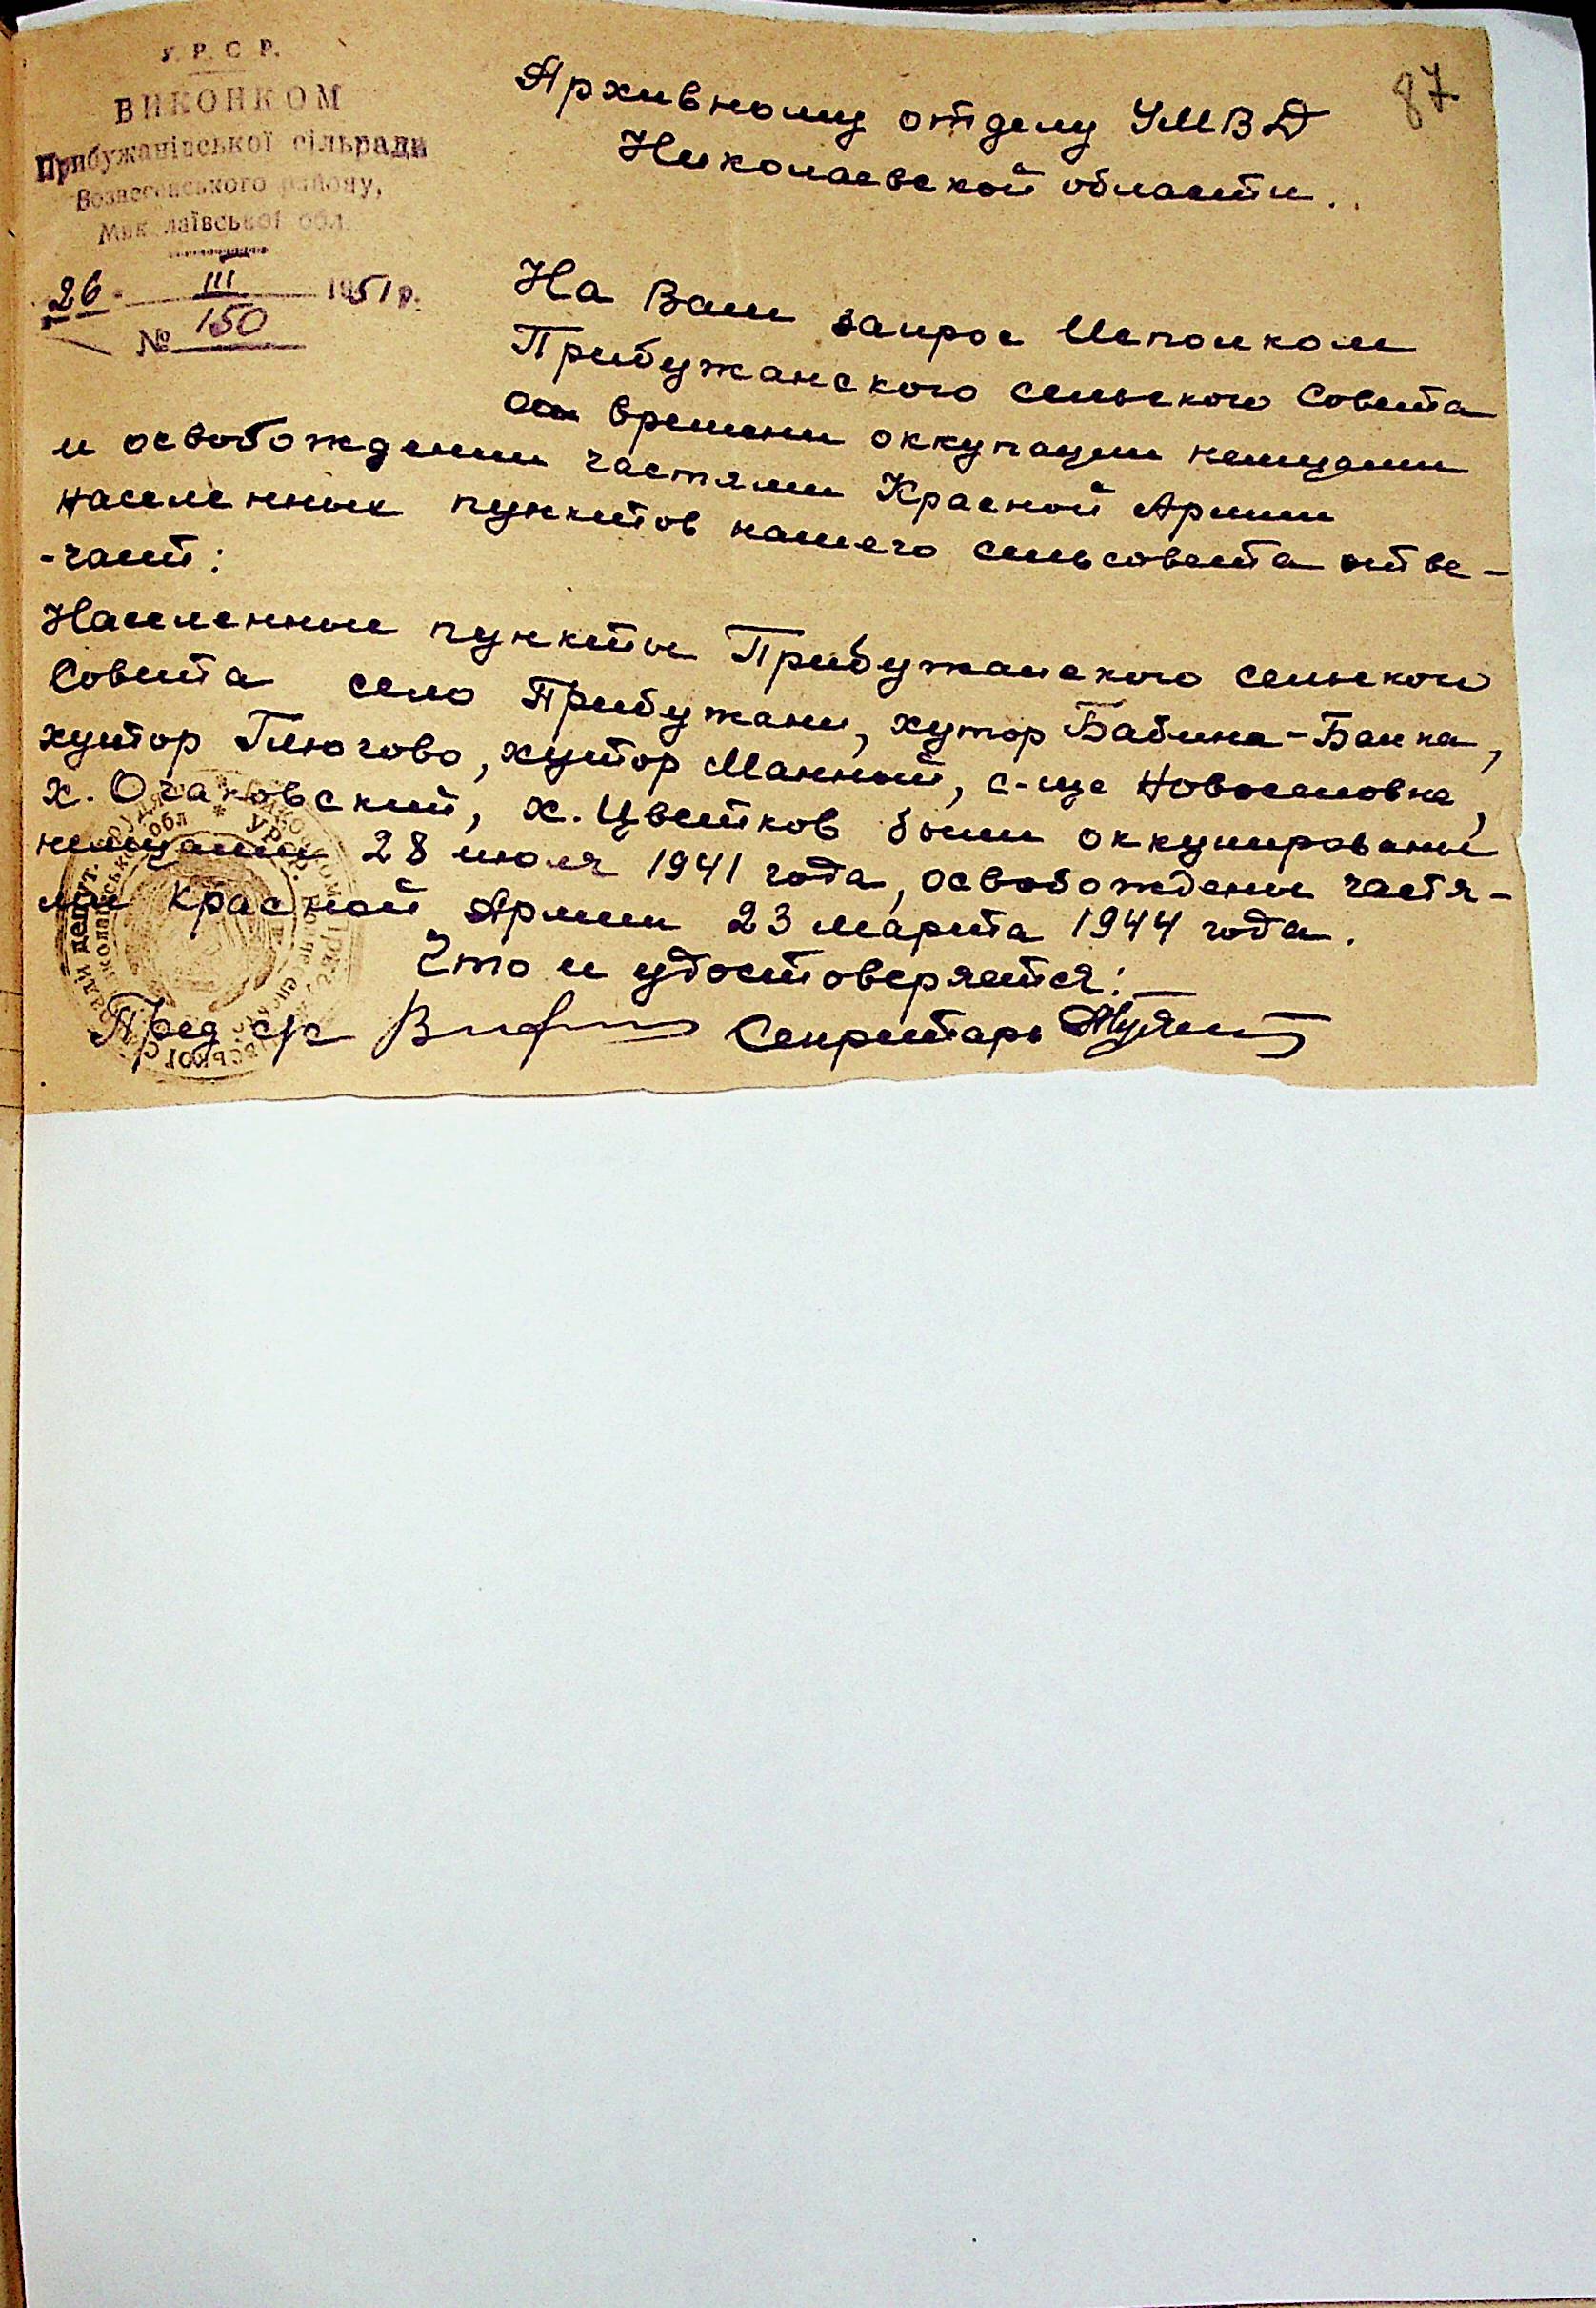 У. Р. С. Р.
ВИКОНКОМ
Прибужанівської сільради
Вознесенського району,
Миколаївської обл.
26 III 1951 р.
№ 150
87
Архивному отделу УМВД
Николаевской области.
На Ваш запрос Исполком
Прибужанского сельского Совета
о времени оккупации немцами
и освобождении частями Красной Армии
населенных пунктов нашего сельсовета отве-
-чает:
Населенные пункты Прибужанского сельского
Совета село Прибужани, хутор Бабина-Балка,
хутор Глюгово, хутор Манный, с-ще Новоселовка,
х. Очаковский, х. Цветков были оккупированы
немцами 28 июля 1941 года, освобождены частя-
ми Красной Армии 23 марта 1944 года.
Что и удостоверяется:
Пред с/с Секретарь